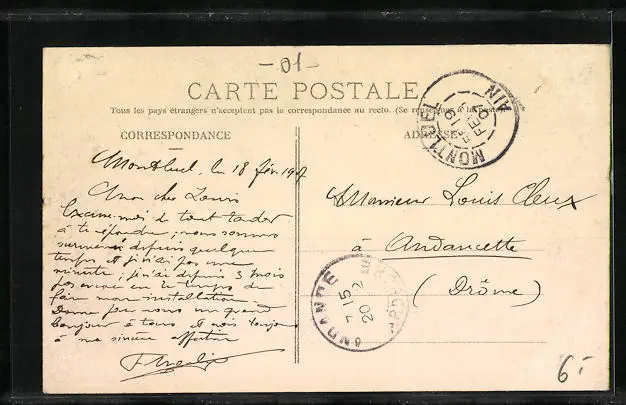 -01-
CARTE POSTALE
Tous les pays étrangers n'acceptent pas la correspondance au recto. (Se renseigner à la poste)
CORRESPONDANCE
ADRESSE
MONTLUEL AIN
19 FEV 07
Montluel, le 18 fév. 1907
Mon cher Louis
Excuse-moi de tout tarder
à te répondre ; nous sommes
surmenés depuis quelque
temps et je n'ai pas une
minute ; je n'ai depuis 3 mois
pas encore eu le temps de
faire mon installation
Donne pour nous un grand
bonjour à tous et crois toujours
à ma sincère affection
Monsieur Louis Cleux
à Andancette
(Drôme)
ANDANCE
7 15
20 2
ARDECHE
6.-